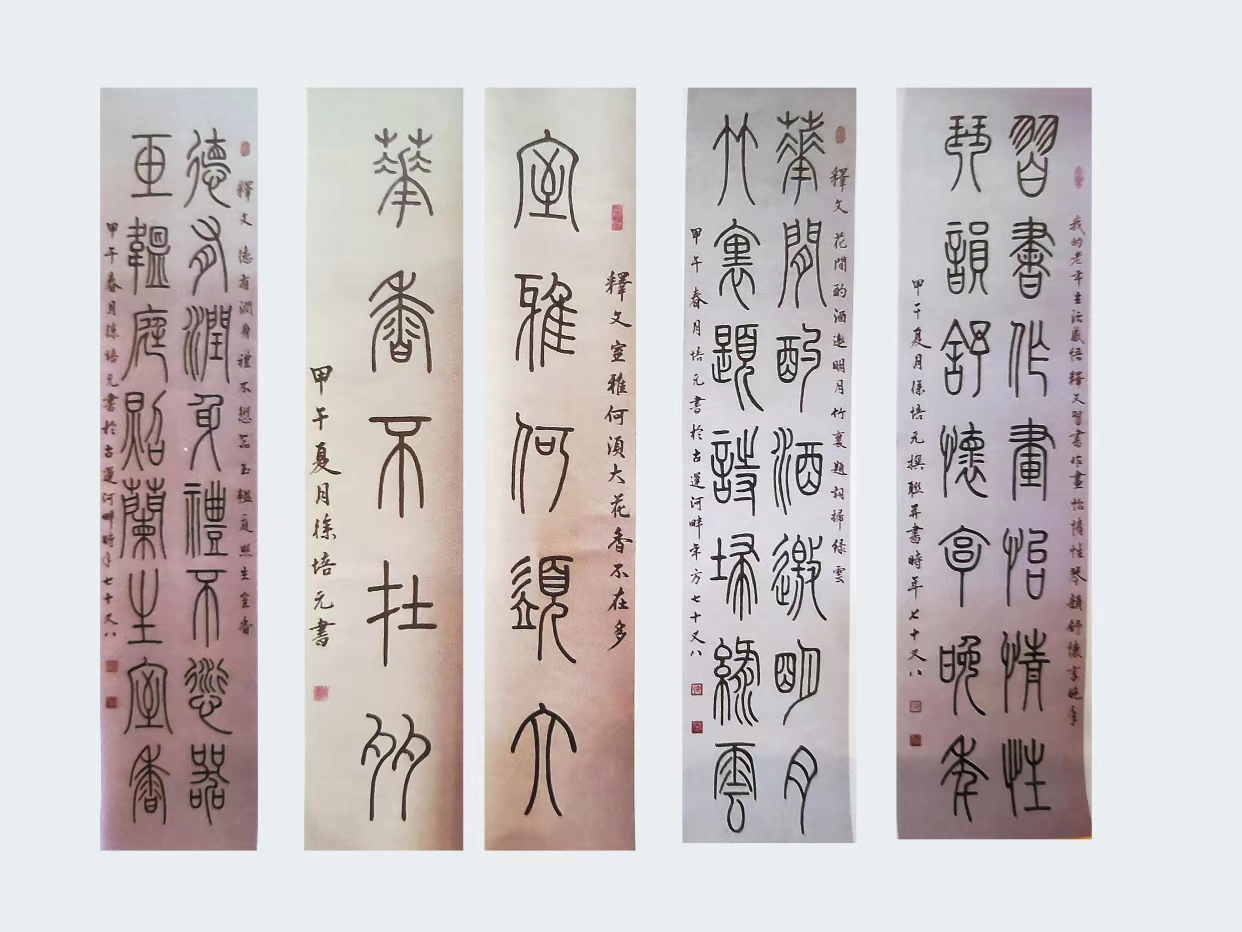 我的老年生活感悟釋文習書作畫怡情性琴韻舒懷享晚年
習書作畫怡情性
琴韻舒懷享晚年
甲午夏月徐培元撰聯并書時年七十又八
釋文花間酌酒邀明月竹裏題詞掃綠雲
華間酌酒邀明月
竹裏題詩掃綠雲
甲午春月培元書於古運河畔年方七十又八
釋文室雅何須大花香不在多
室雅何須大
華香不在多
甲午夏月徐培元書
釋文德有潤身禮不愆器玉韞庭照生室香
德有潤身禮不愆器
玉韞庭照蘭生室香
甲午春月徐培元書於古運河畔時年七十又八